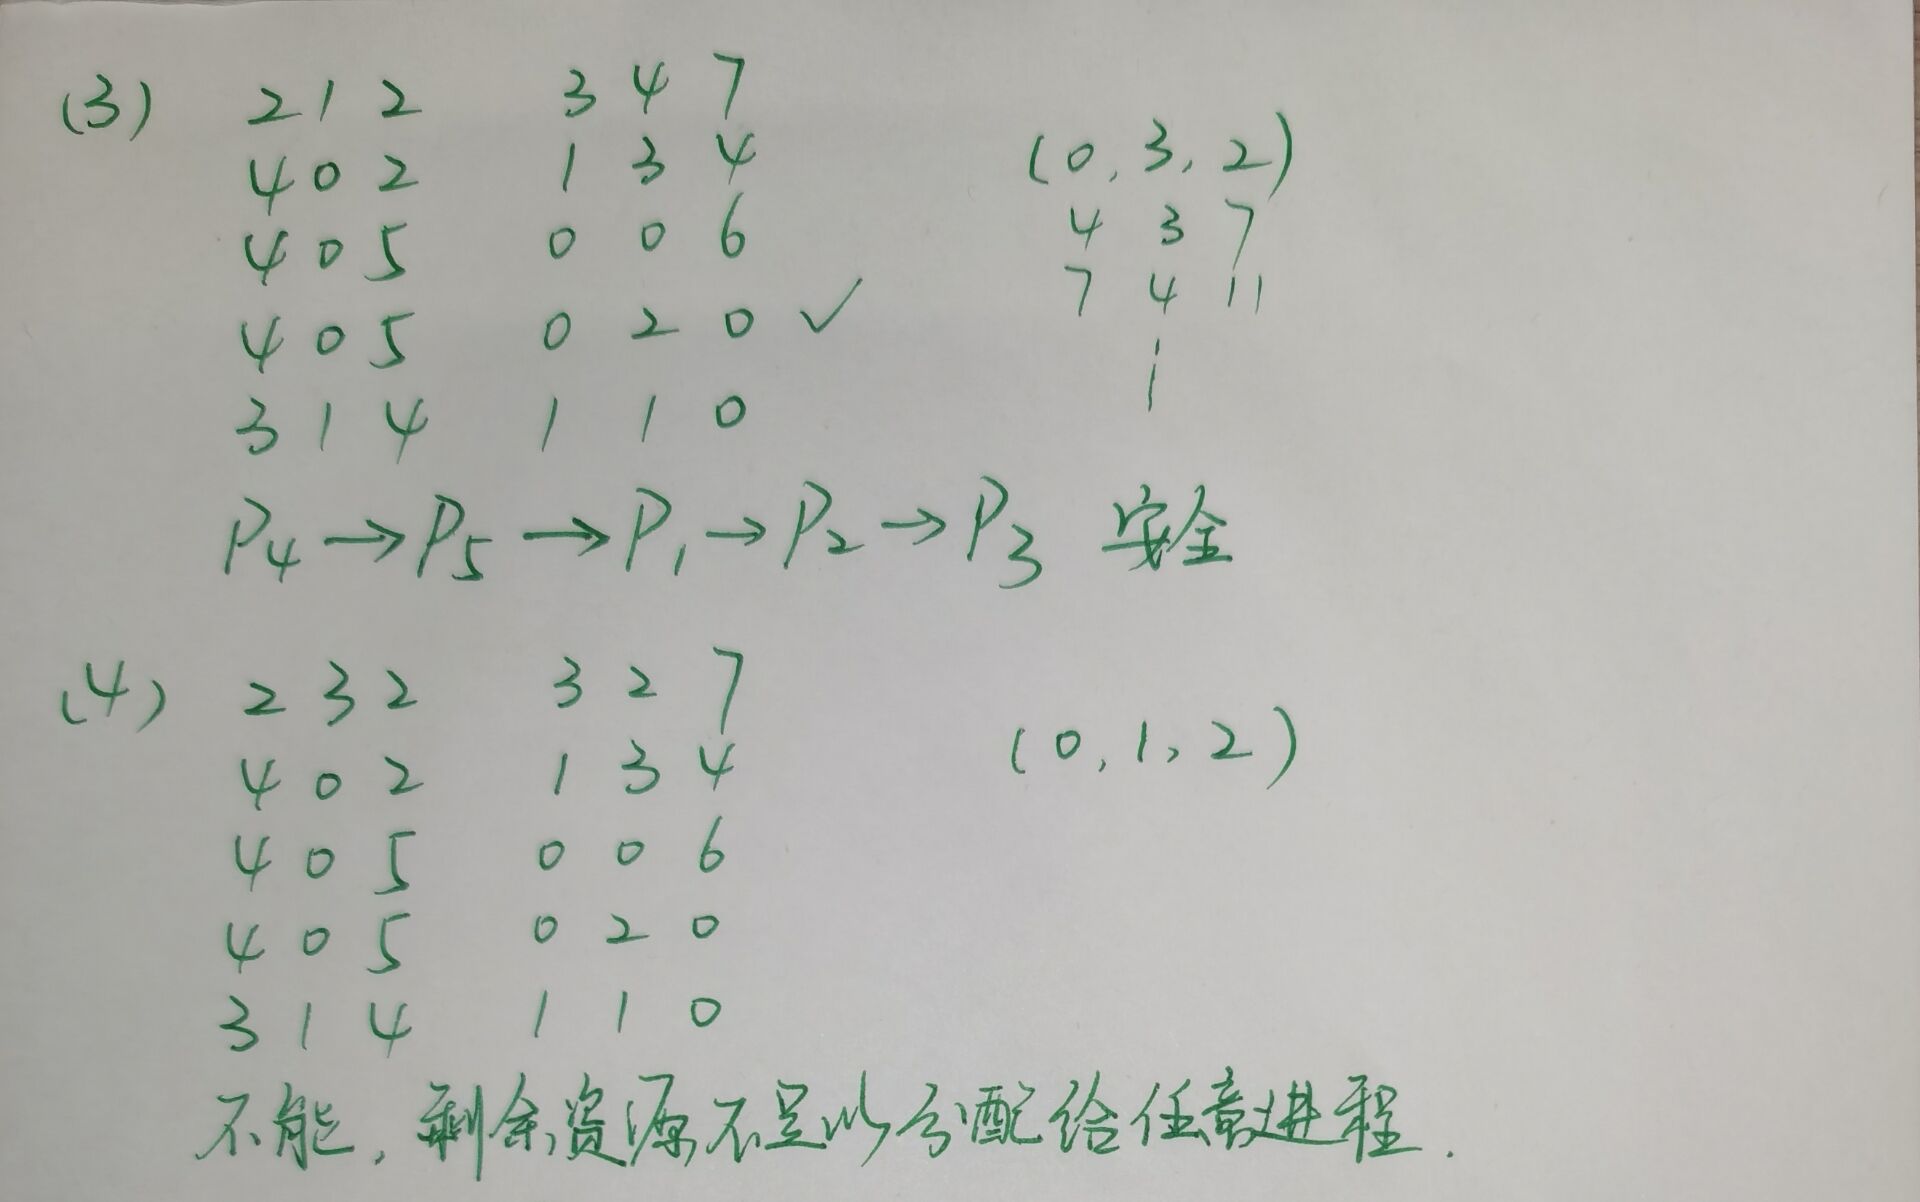 (3) 2 1 2 3 4 7
4 0 2 1 3 4 (0, 3, 2)
4 0 5 0 0 6 4 3 7
4 0 5 0 2 0 ✓ 7 4 11
3 1 4 1 1 0
P4→P5→P1→P2→P3 安全
(4) 2 3 2 3 2 7
4 0 2 1 3 4 (0, 1, 2)
4 0 5 0 0 6
4 0 5 0 2 0
3 1 4 1 1 0
不能, 剩余资源不足以分配给任意进程.